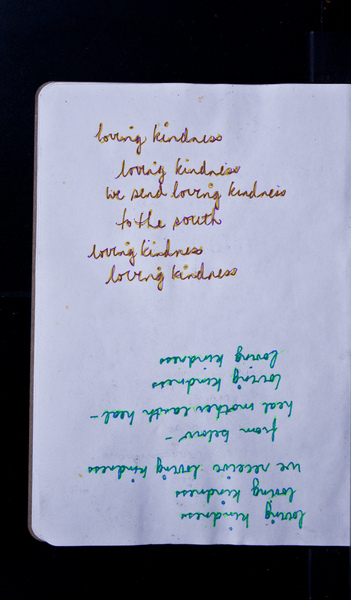 loving kindness
loving kindness
we send loving kindness
to the south
loving kindness
loving kindness
loving kindness
loving kindness
we receive loving kindness
from below -
heal mother earth heal -
loving kindness
loving kindness